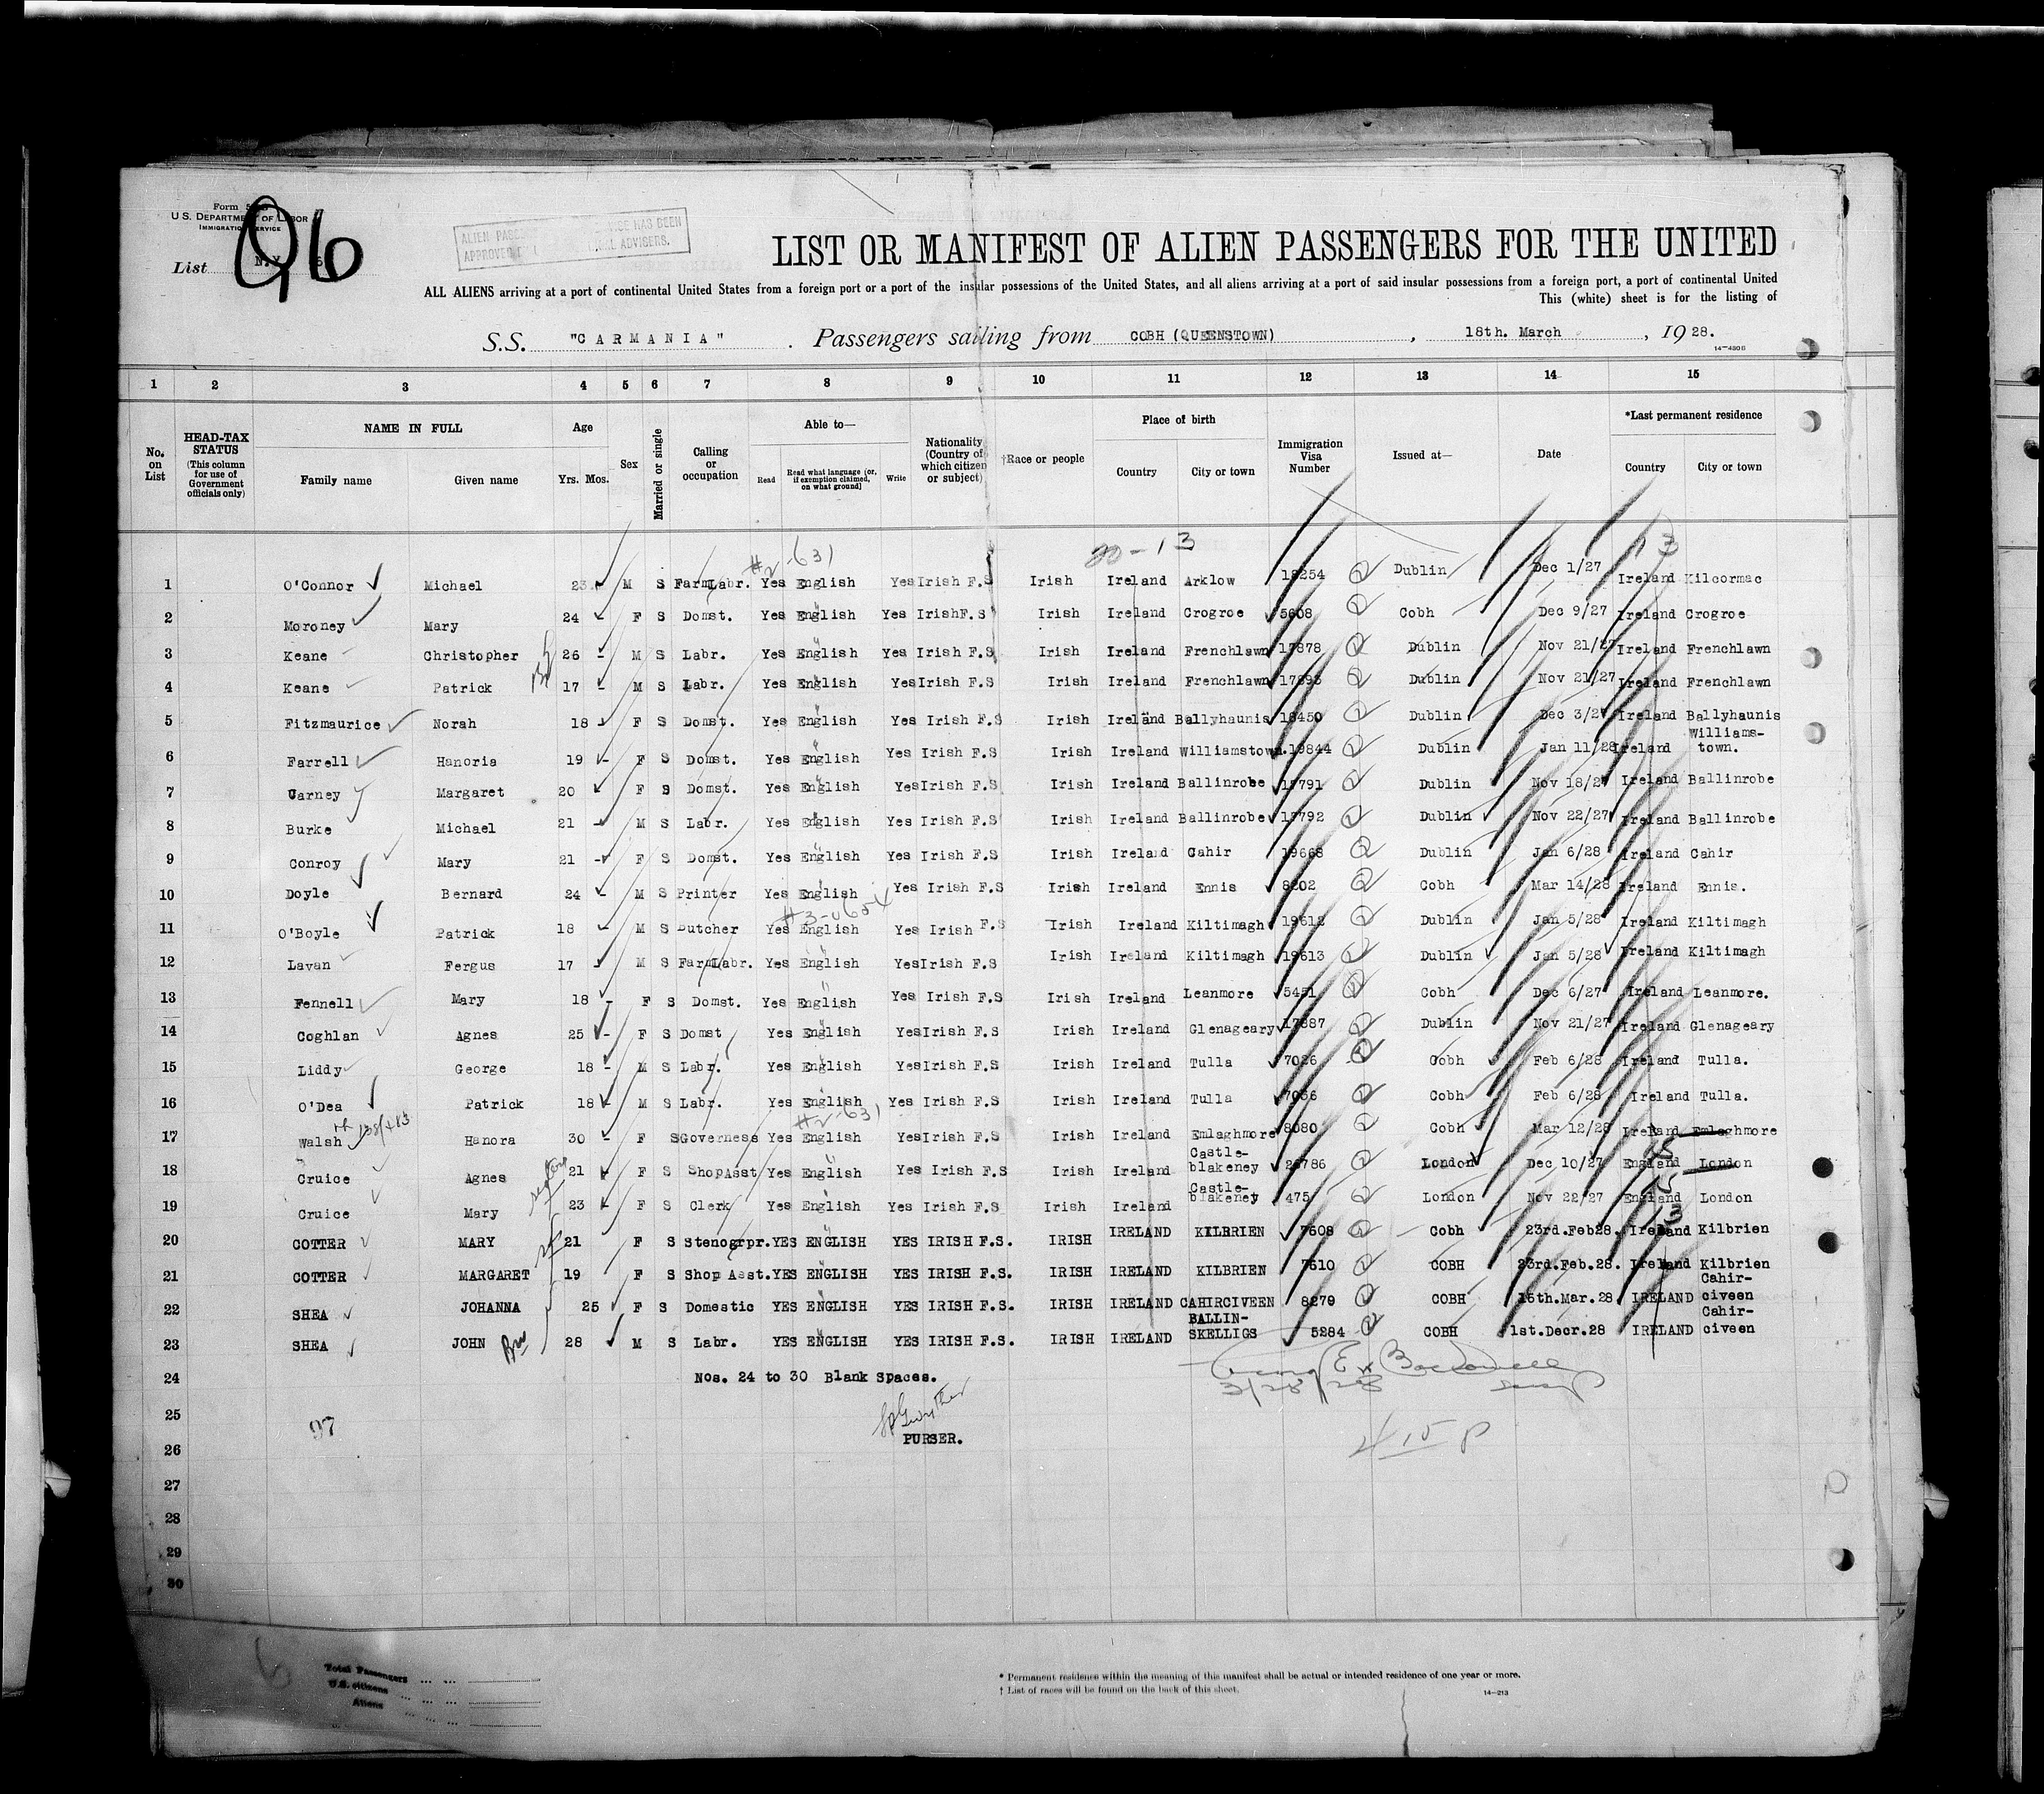 Form 5
U.S. DEPARTMENT OF LABOR
IMMIGRATION SERVICE
List N.Y.
96
ALIEN PASS HAS BEEN
APPROVED ADVISERS.
LIST OR MANIFEST OF ALIEN PASSENGERS FOR THE UNITED
ALL ALIENS arriving at a port of continental United States from a foreign port or a port of the insular possessions of the United States, and all aliens arriving at a port of said insular possessions from a foreign port, a port of continental United
This (white) sheet is for the listing of
S.S. "CARMANIA" . Passengers sailing from COBH (QUEENSTOWN) , 18th. March , 1928.
1 2 3 4 5 6 7 8 9 10 11 12 13 14 15
No. on List
HEAD-TAX STATUS (This column for use of Government officials only)
NAME IN FULL
Family name Given name
Age
Yrs. Mos.
Sex
Married or single
Calling or occupation
Able to—
Read Read what language (or, if exemption claimed, on what ground) Write
Nationality (Country of which citizen or subject)
†Race or people
Place of birth
Country City or town
Immigration Visa Number
Issued at—
Date
*Last permanent residence
Country City or town
#2-631 20-13 13
1 O'Connor Michael 23 M S FarmLabr. Yes English Yes Irish F.S Irish Ireland Arklow 18254 Dublin Dec 1/27 Ireland Kilcormac
2 Moroney Mary 24 F S Domst. Yes English Yes IrishF.S Irish Ireland Crogroe 5608 Cobh Dec 9/27 Ireland Crogroe
3 Keane Christopher 26 - M S Labr. Yes English Yes Irish F.S Irish Ireland Frenchlawn 17878 Dublin Nov 21/27 Ireland Frenchlawn
4 Keane Patrick 17 - M S Labr. Yes English Yes Irish F.S Irish Ireland Frenchlawn Dublin Nov 21/27 Ireland Frenchlawn
5 Fitzmaurice Norah 18 F S Domst. Yes English Yes Irish F.S Irish Ireland Ballyhaunis 18450 Dublin Dec 3/27 Ireland Ballyhaunis
6 Farrell Hanoria 19 F S Domst. Yes English Yes Irish F.S Irish Ireland Williamstown. 19844 Dublin Jan 11/28 Ireland Williams-
town.
7 Carney Margaret 20 F S Domst. Yes English Yes Irish F.S Irish Ireland Ballinrobe 17791 Dublin Nov 18/27 Ireland Ballinrobe
8 Burke Michael 21 - M S Labr. Yes English Yes Irish F.S Irish Ireland Ballinrobe 17792 Dublin Nov 22/27 Ireland Ballinrobe
9 Conroy Mary 21 - F S Domst. Yes English Yes Irish F.S Irish Ireland Cahir 19668 Dublin Jan 6/28 Ireland Cahir
10 Doyle Bernard 24 - M S Printer Yes English Yes Irish F.S Irish Ireland Ennis 8202 Cobh Mar 14/28 Ireland Ennis.
11 O'Boyle Patrick 18 - M S Butcher Yes English Yes Irish F.S Irish Ireland Kiltimagh 19612 Dublin Jan 5/28 Ireland Kiltimagh
12 Lavan Fergus 17 - M S FarmLabr. Yes English Yes Irish F.S Irish Ireland Kiltimagh 19613 Dublin Jan 5/28 Ireland Kiltimagh
13 Fennell Mary 18 - F S Domst. Yes English Yes Irish F.S Irish Ireland Leanmore 5451 Cobh Dec 6/27 Ireland Leanmore.
14 Coghlan Agnes 25 - F S Domst Yes English Yes Irish F.S Irish Ireland Glenageary 17887 Dublin Nov 21/27 Ireland Glenageary
15 Liddy George 18 - M S Labr. Yes English Yes Irish F.S Irish Ireland Tulla 7026 Cobh Feb 6/28 Ireland Tulla.
16 O'Dea Patrick 18 M S Labr. Yes English Yes Irish F.S Irish Ireland Tulla 7056 Cobh Feb 6/28 Ireland Tulla.
#2-631
17 Walsh Hanora 30 - F S Governess Yes English Yes Irish F.S Irish Ireland Emlaghmore 8080 Cobh Mar 12/28 Ireland Emlaghmore
18 Cruice Agnes 21 F S ShopAsst Yes English Yes Irish F.S Irish Ireland Castle-
blakeney 26786 London Dec 10/27 England London
19 Cruice Mary 23 F S Clerk Yes English Yes Irish F.S Irish Ireland Castle-
blakeney 475 London Nov 22/27 England London
20 COTTER MARY 21 F S Stenogrpr. YES ENGLISH YES IRISH F.S. IRISH IRELAND KILBRIEN 7608 Cobh 23rd.Feb28. Ireland Kilbrien
21 COTTER MARGARET 19 F S Shop Asst. YES ENGLISH YES IRISH F.S. IRISH IRELAND KILBRIEN 7610 COBH 23rd.Feb.28. Ireland Kilbrien
22 SHEA JOHANNA 25 F S Domestic YES ENGLISH YES IRISH F.S. IRISH IRELAND CAHIRCIVEEN 8279 COBH 15th.Mar.28 IRELAND Cahir-
civeen
23 SHEA JOHN 28 M S Labr. YES ENGLISH YES IRISH F.S. IRISH IRELAND BALLIN-
SKELLIGS 5284 COBH 1st.Decr.28 IRELAND Cahir-
civeen
24 Nos. 24 to 30 Blank Spaces.
3/28/28
25 97
PURSER.
415 P
26
27
28
29
30
6
Total Passengers ... ...
U.S. citizens ... ... ...
Aliens ... ... ...
* Permanent residence within the meaning of this manifest shall be actual or intended residence of one year or more.
† List of races will be found on the back of this sheet.
14—213